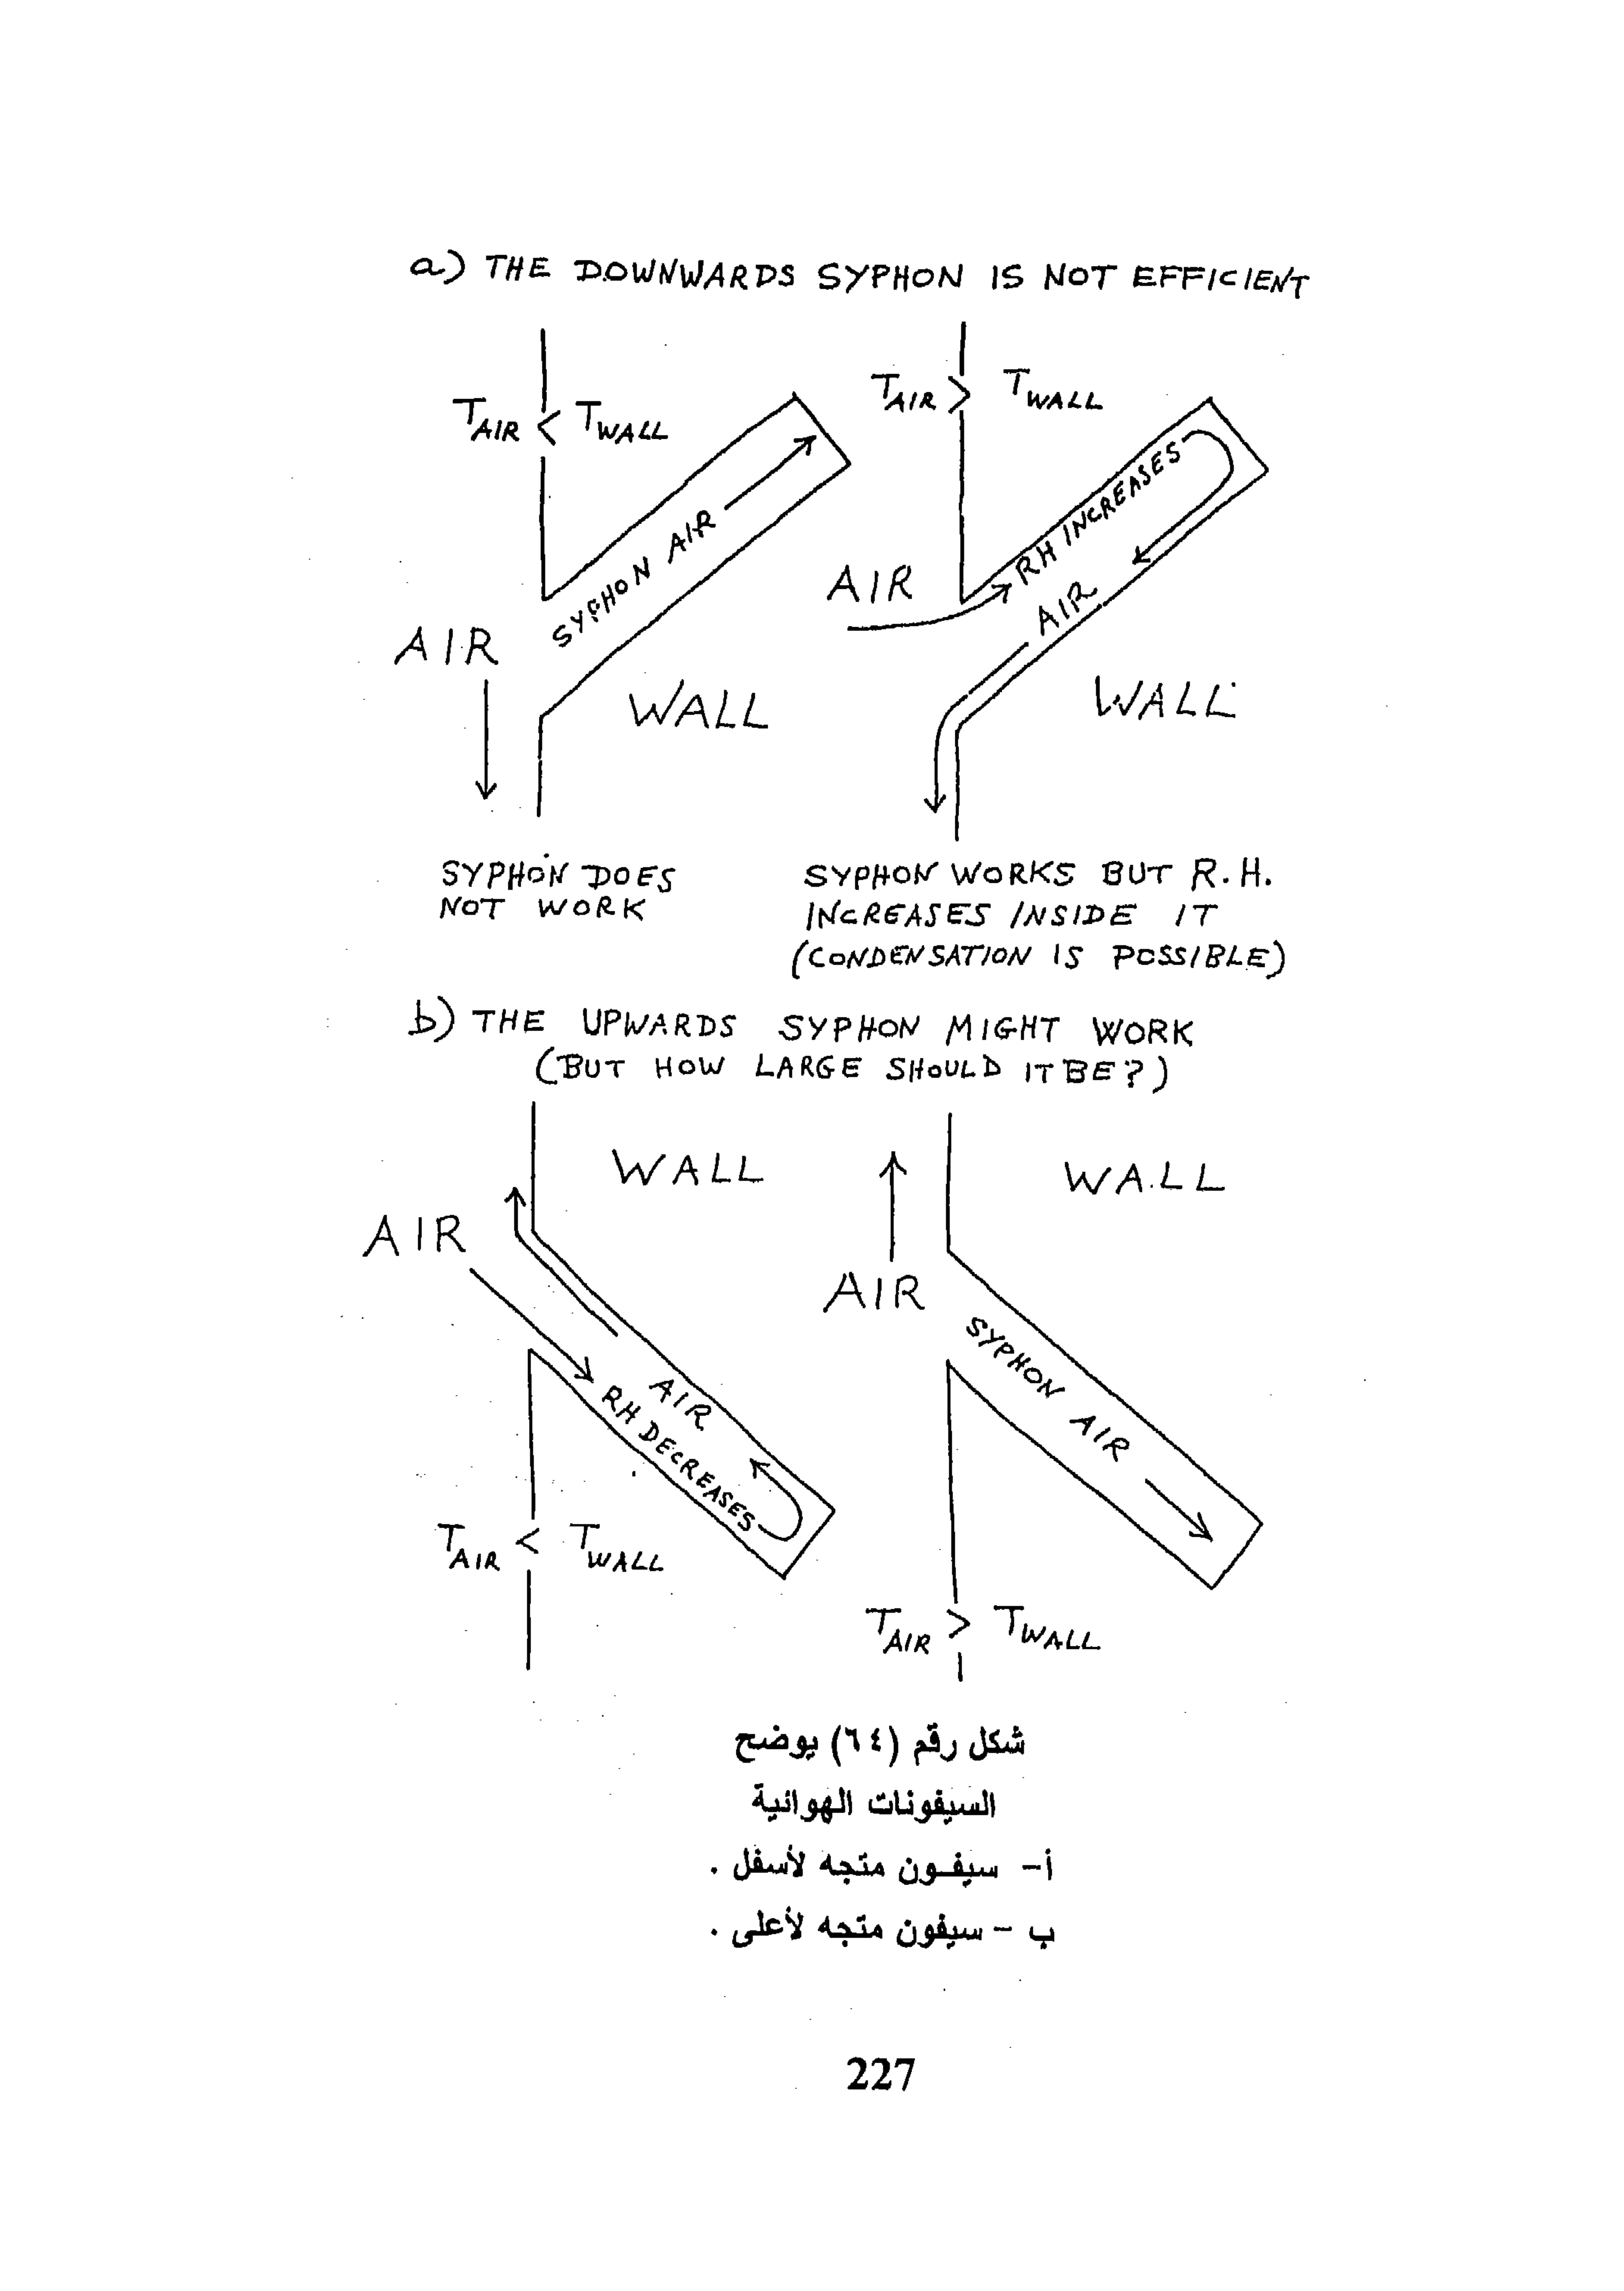 a) THE DOWNWARDS SYPHON IS NOT EFFICIENT
TAIR < TWALL
TAIR > TWALL
SYPHON AIR
RH INCREASES
AIR
AIR
AIR
WALL
WALL
SYPHON DOES
NOT WORK
SYPHON WORKS BUT R.H.
INCREASES INSIDE IT
(CONDENSATION IS POSSIBLE)
b) THE UPWARDS SYPHON MIGHT WORK
(BUT HOW LARGE SHOULD IT BE?)
WALL
WALL
AIR
AIR
SYPHON AIR
AIR
RH DECREASES
TAIR < TWALL
TAIR > TWALL
شكل رقم (٦٤) يوضح
السيفونات الهوائية
أ- سيفون متجه لأسفل .
ب - سيفون متجه لأعلى .
227